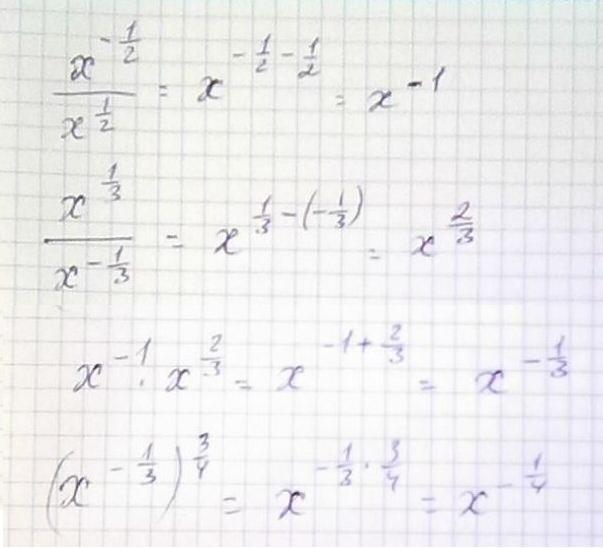 x^{-\frac{1}{2}} / x^{\frac{1}{2}} = x^{-\frac{1}{2}-\frac{1}{2}} = x^{-1}
x^{\frac{1}{3}} / x^{-\frac{1}{3}} = x^{\frac{1}{3}-(-\frac{1}{3})} = x^{\frac{2}{3}}
x^{-1} · x^{\frac{2}{3}} = x^{-1+\frac{2}{3}} = x^{-\frac{1}{3}}
(x^{-\frac{1}{3}})^{\frac{3}{4}} = x^{-\frac{1}{3}·\frac{3}{4}} = x^{-\frac{1}{4}}